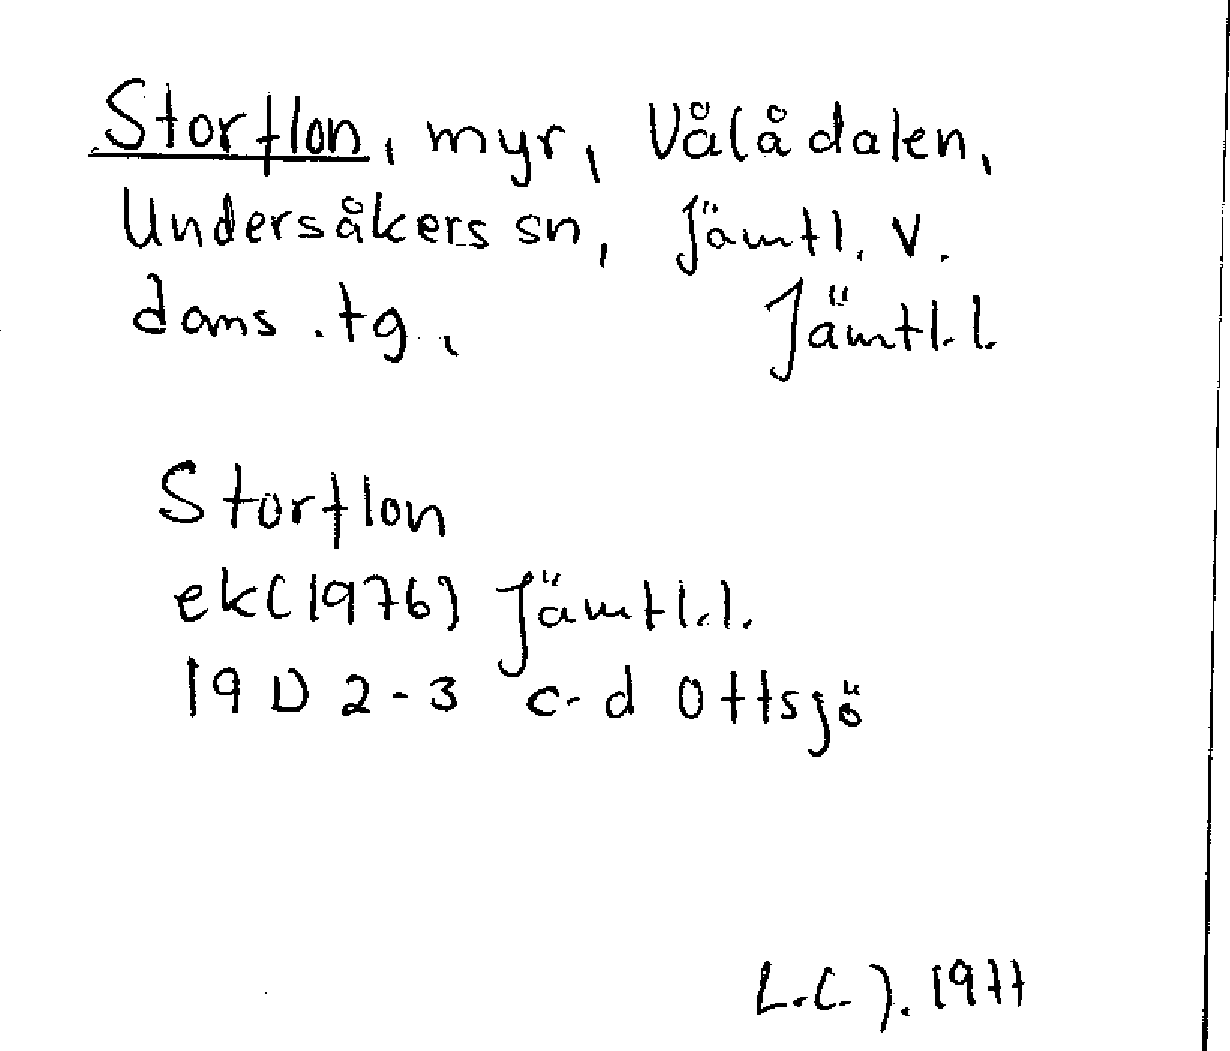 Storflon, myr, Vålådalen,
Undersåkers sn, Jämtl. v.
doms.tg., Jämtl.l.
Storflon
ek(1976) Jämtl.l.
19 D 2-3 c-d Ottsjö
L.C.J. 1977